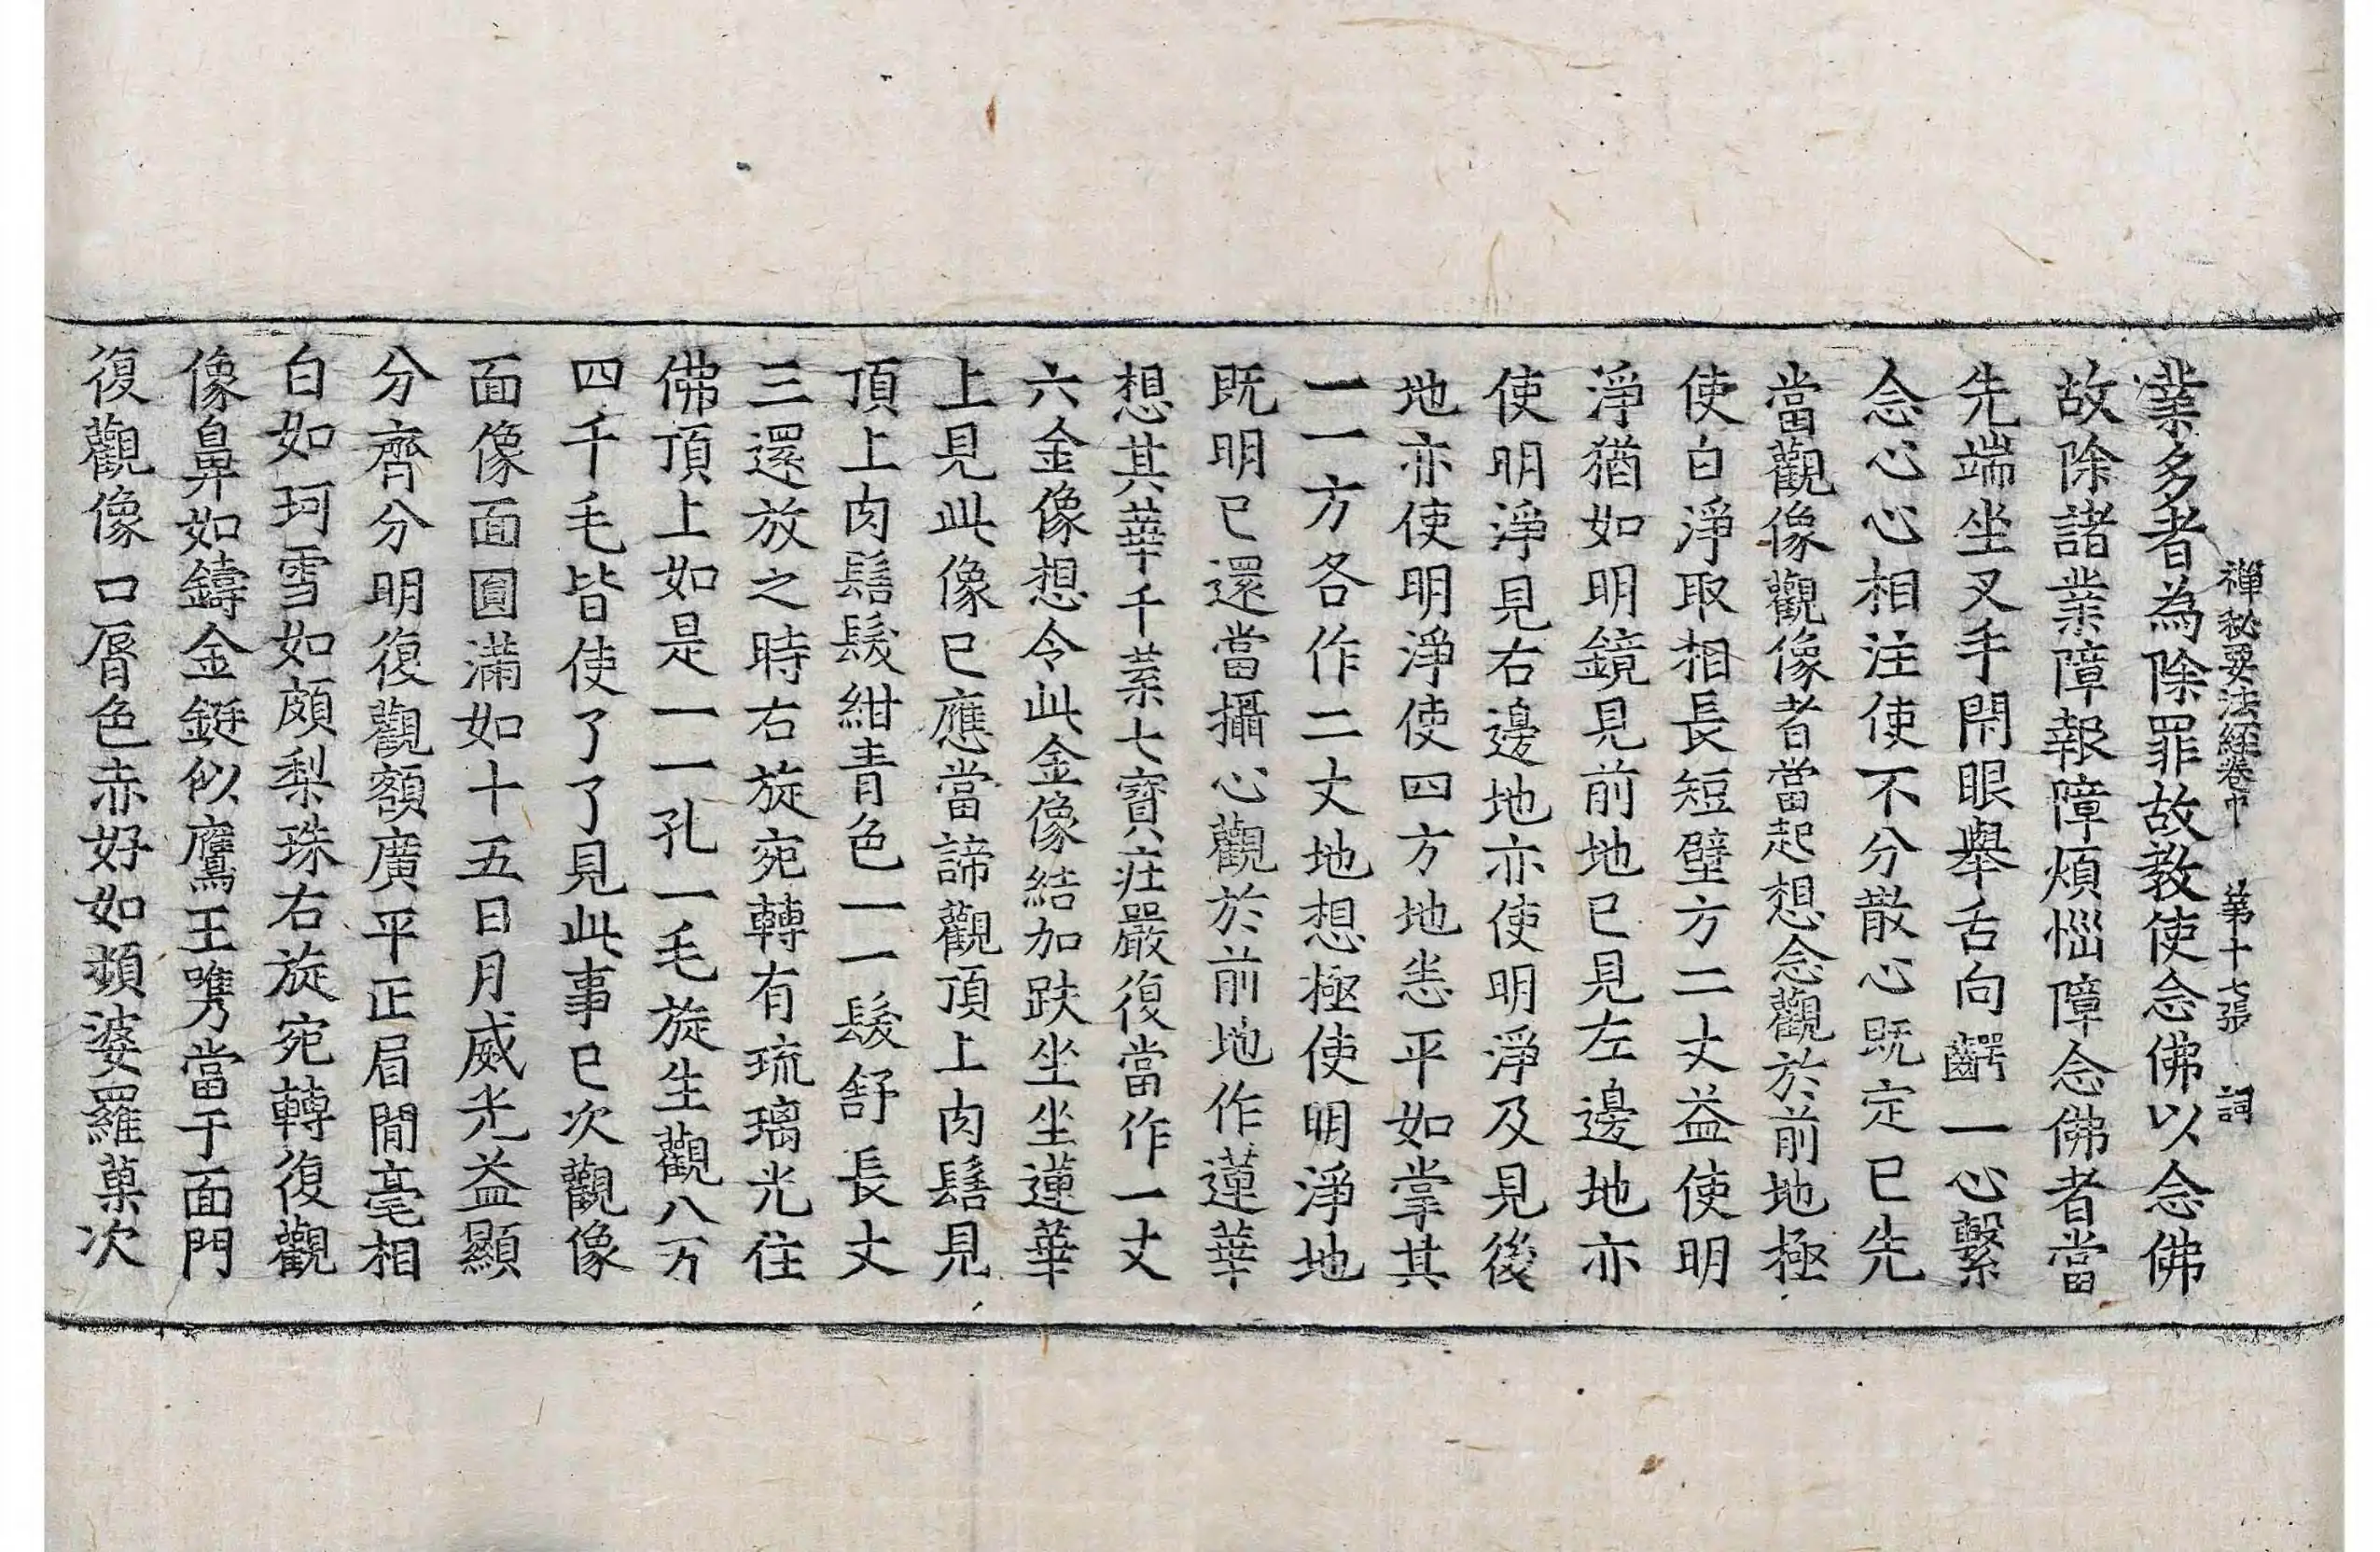 禪秘要法經卷中 第十七張 詞
業多者為除罪故教使念佛以念佛
故除諸業障報障煩惱障念佛者當
先端坐叉手閇眼舉舌向齶一心繫
念心心相注使不分散心既定已先
當觀像觀像者當起想念觀於前地極
使白淨取相長短壁方二丈益使明
淨猶如明鏡見前地已見左邊地亦
使明淨見右邊地亦使明淨及見後
地亦使明淨使四方地悉平如掌其
一一方各作二丈地想極使明淨地
既明已還當攝心觀於前地作蓮華
想其華千葉七寶庄嚴復當作一丈
六金像想令此金像結加趺坐坐蓮華
上見此像已應當諦觀頂上肉髻見
頂上肉髻髮紺青色一一髮舒長丈
三還放之時右旋宛轉有琉璃光住
佛頂上如是一一孔一毛旋生觀八万
四千毛皆使了了見此事已次觀像
面像面圓滿如十五日月威光益顯
分齊分明復觀額廣平正眉間毫相
白如珂雪如頗梨珠右旋宛轉復觀
像鼻如鑄金鋌似鷹王嘴當于面門
復觀像口脣色赤好如頻婆羅菓次